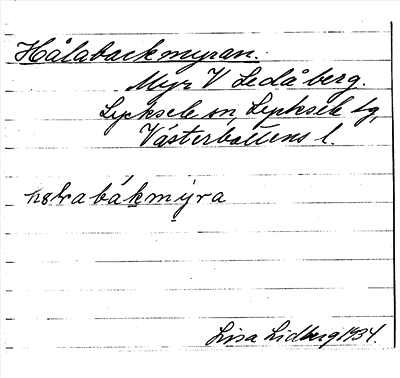 Hålabackmyran.
Myr V Ledåberg.
Lycksele sn, Lycksele lg,
Västerbottens l.
bákmýra
Lisa Lidberg 1934.